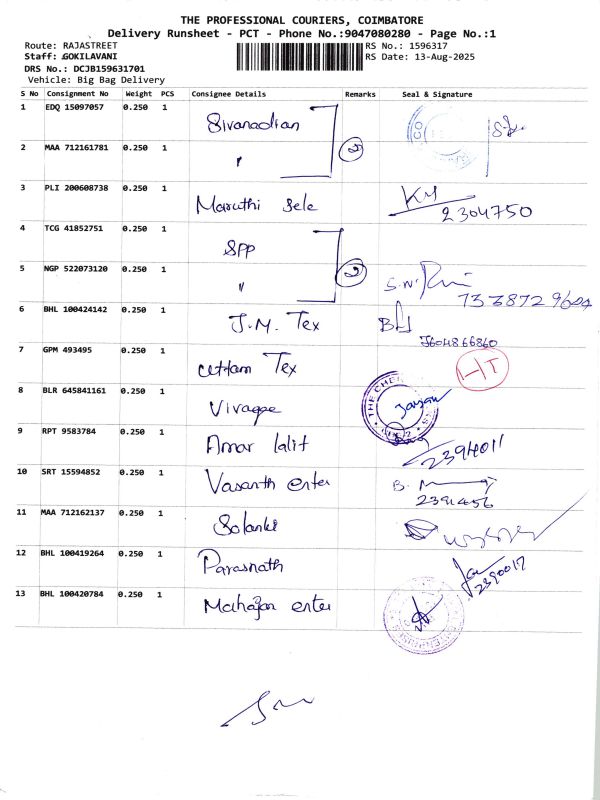 THE PROFESSIONAL COURIERS, COIMBATORE
Delivery Runsheet - PCT - Phone No.:9047080280 - Page No.:1
Route: RAJASTREET RS No.: 1596317
Staff: GOKILAVANI RS Date: 13-Aug-2025
DRS No.: DCJB159631701
Vehicle: Big Bag Delivery
S No Consignment No Weight PCS Consignee Details Remarks Seal & Signature
1 EDQ 15097057 0.250 1 Sivanadian
2 MAA 712161781 0.250 1 " 2
3 PLI 200608738 0.250 1 Maruthi Sele KM
2304750
4 TCG 41852751 0.250 1 SPP
5 NGP 522073120 0.250 1 " 2 S.N.
6 BHL 100424142 0.250 1 J.M. Tex
7 GPM 493495 0.250 1 Uttam Tex
8 BLR 645841161 0.250 1 THE CHE
9 RPT 9583784 0.250 1 Amar lalit 2394011
10 SRT 15594852 0.250 1 Vasanth enter B.
2391456
11 MAA 712162137 0.250 1 Solanki
12 BHL 100419264 0.250 1 Parasnath 2390017
13 BHL 100420784 0.250 1 Mahajan enter